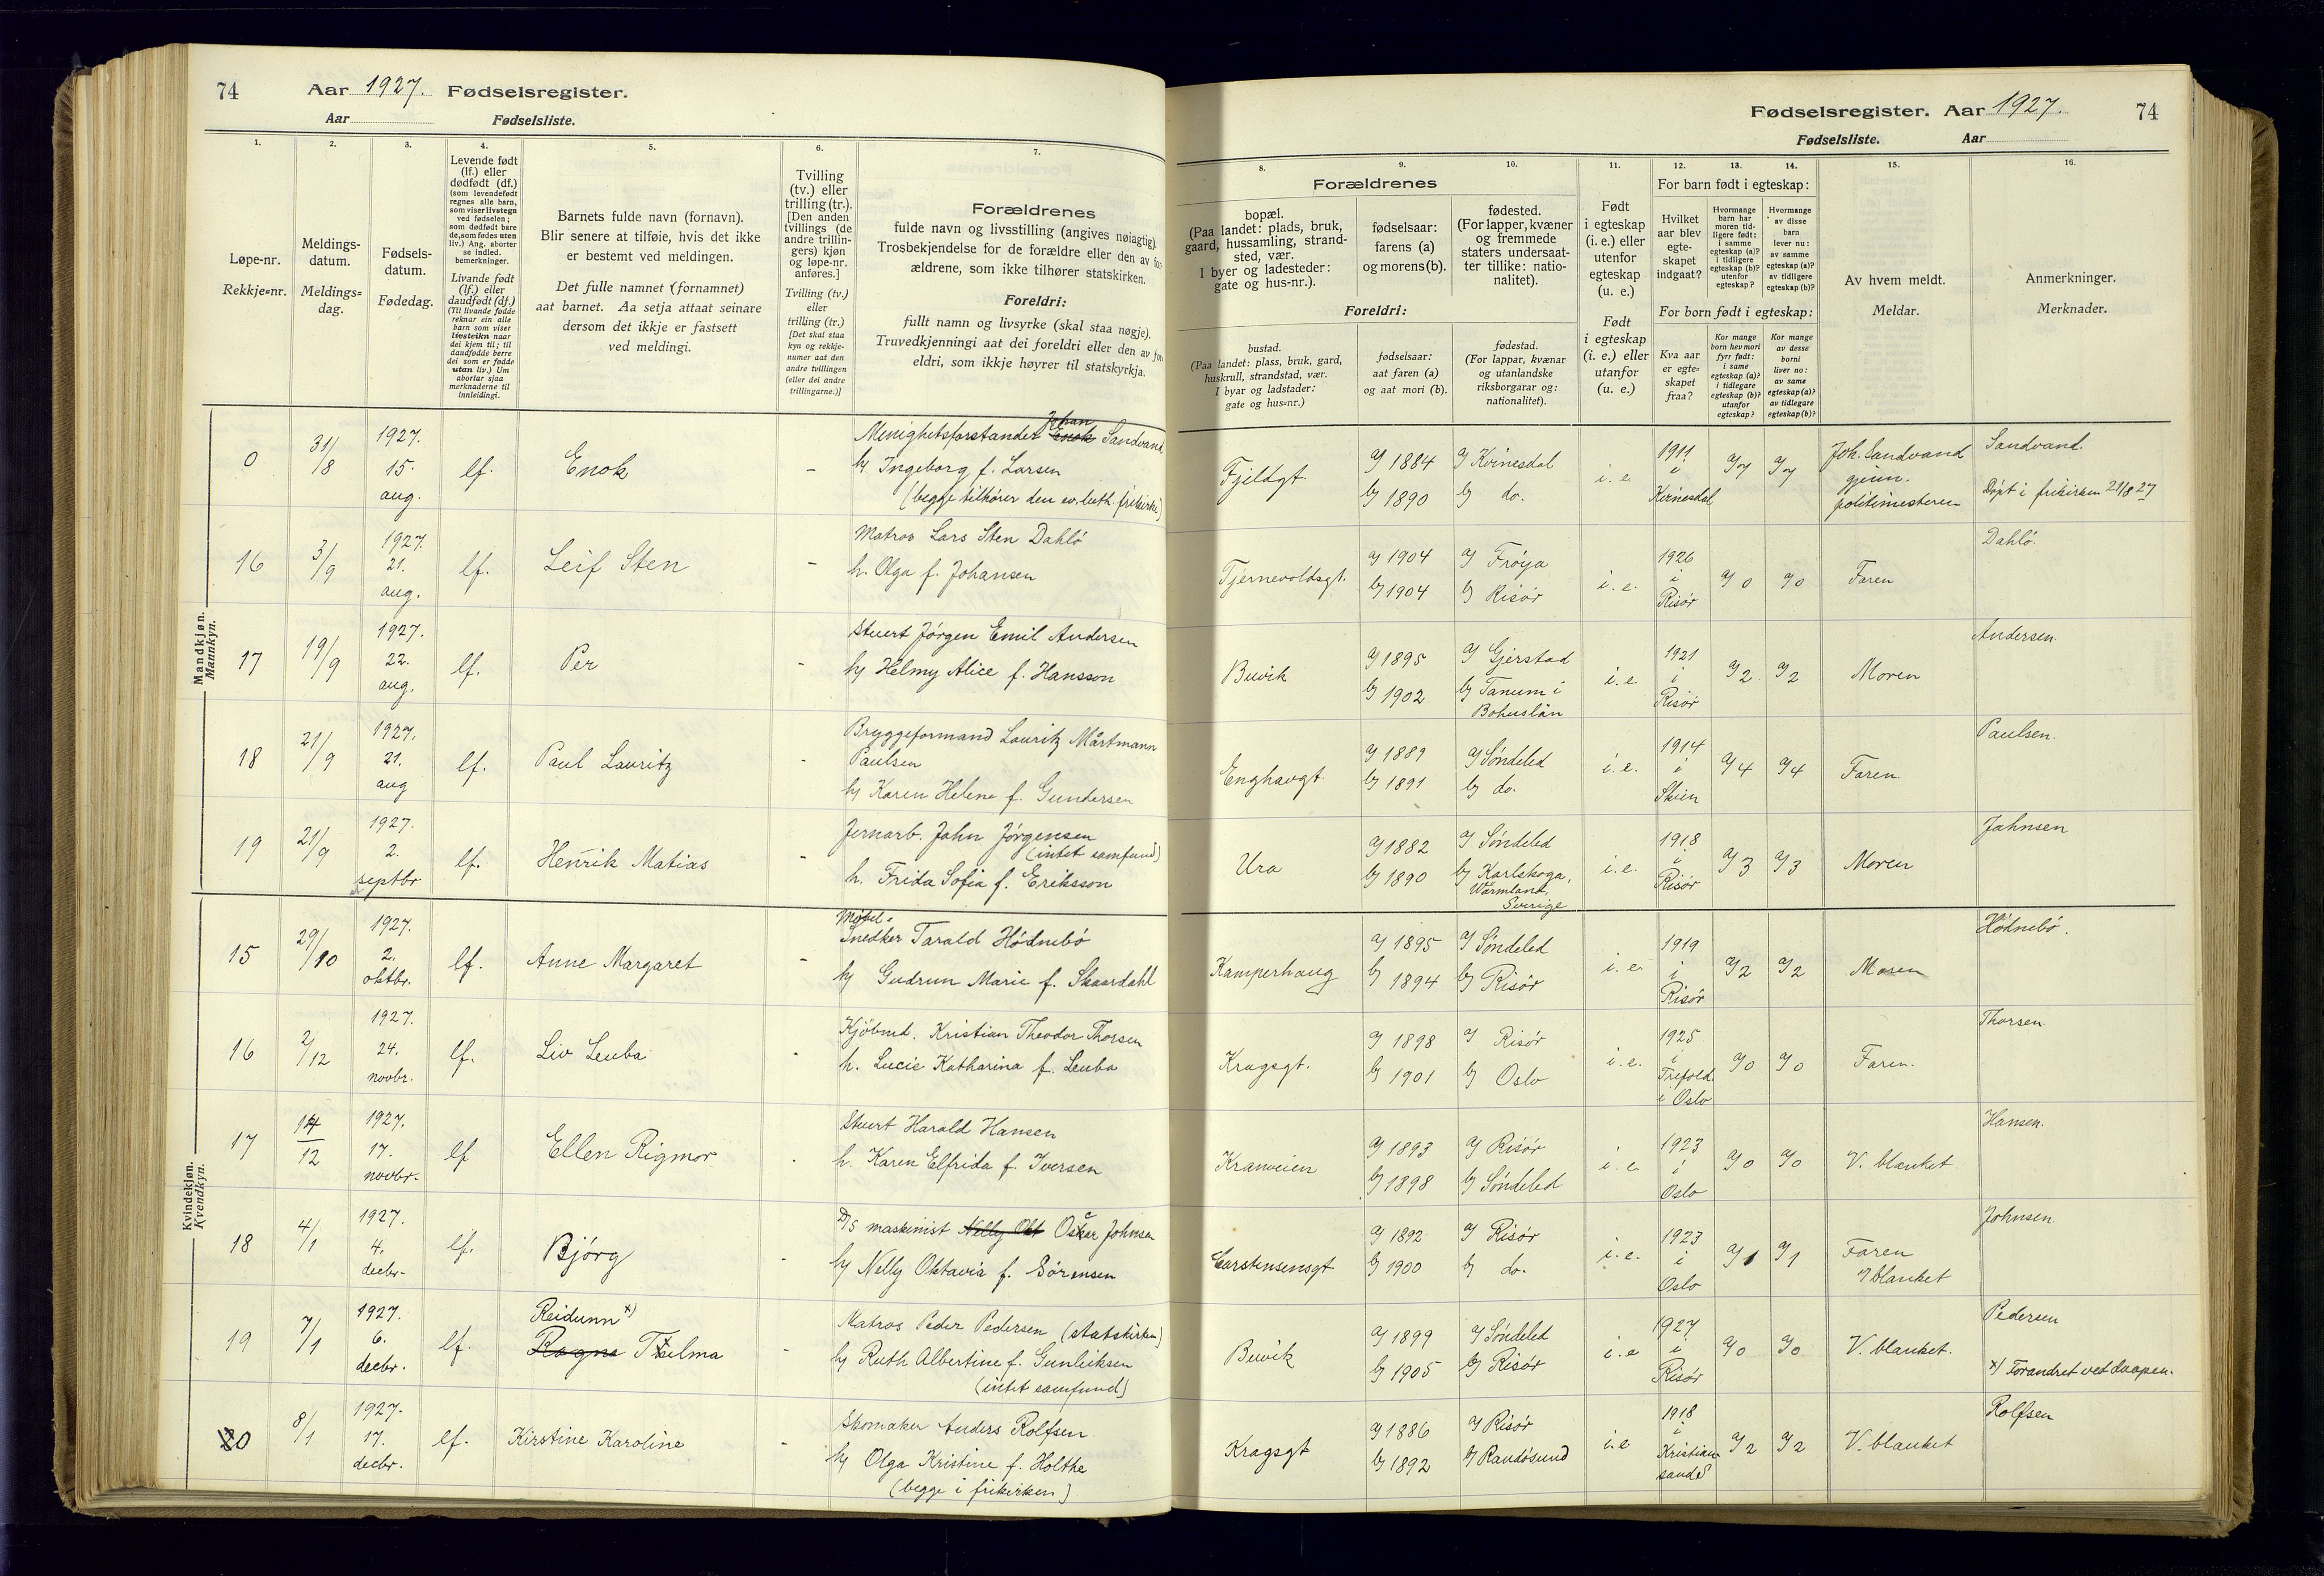 74 Aar 1927. Fødselsregister.
Aar Fødselsliste.
1.
Løpe-nr.
Rekkje=nr.
2.
Meldings-
datum.
Meldings=
dag.
3.
Fødsels-
datum.
Fødedag.
4.
Levende født
(lf.) eller
dødfødt (df.)
(som levendefødt
regnes alle barn,
som viser livstegn
ved fødselen;
som dødfødt bare
de, som fødes uten
liv.) Ang. aborter
se indled.
bemerkninger.
Livande født
(lf.) eller
daudfødt (df.)
(Til livande fødde
reknar ein alle
barn som viser
livsteikn naar
dei kjem til; til
daudfødde berre
dei som er fødde
utan liv.) Um
abortar sjaa
merknaderne til
innleidingi.
5.
Barnets fulde navn (fornavn).
Blir senere at tilføie, hvis det ikke
er bestemt ved meldingen.
Det fulle namnet (fornamnet)
aat barnet. Aa setja attaat seinare
dersom det ikkje er fastsett
ved meldingi.
6.
Tvilling
(tv.) eller
trilling (tr.).
[Den anden
tvillings (de
andre trillin-
gers) kjøn
og løpe-nr.
anføres.]
Tvilling (tv.)
eller
trilling (tr.)
[Det skal staa
kyn og rekkje-
numer aat den
andre tvillingen
(eller dei andre
trillingarne.)]
7.
Forældrenes
fulde navn og livsstilling (angives nøiagtig).
Trosbekjendelse for de forældre eller den av for-
ældrene, som ikke tilhører statskirken.
Foreldri:
fullt namn og livsyrke (skal staa nøgje).
Truvedkjenningi aat dei foreldri eller den av for-
eldri, som ikkje høyrer til statskyrkja.
Mandkjøn.
Mannkyn.
0 31/8 1927. 15. aug. lf. Enok - Menighetsforstander Enok Johan Sandvand
h/ Ingeborg f. Larsen
(begge tilhører den ev. luth. frikirke)
16 3/9 1927. 21. aug. lf. Leif Sten - Matros Lars Sten Dahlø
h. Olga f. Johansen
17 19/9 1927. 22. aug. lf. Per - Stuert Jørgen Emil Andersen
h/ Helmy Alice f. Hansson
18 21/9 1927. 21. aug lf. Paul Lauritz - Bryggeformand Lauritz Mårtmann
Paulsen
h/ Karen Helene f. Gundersen
19 21/9 1927. 2. septbr lf. Henrik Matias - Jernarb. John Jørgensen
(intet samfund)
h. Frida Sofia f. Eriksson
Kvindekjøn.
Kvendkyn.
15 29/10 1927. 2. oktbr. lf. Anne Margaret - Møbel-
Snedker Tarald Hødnebø
h/ Gudrun Marie f. Skaardahl
16 2/12 1927. 24. novbr. lf. Liv Leuba - Kjøbmd. Kristian Theodor Thorsen
h. Lucie Katharina f. Leuba
17 14/12 1927. 17. novbr. lf Ellen Rigmor - Stuert Harald Hansen
h. Karen Elfrida f. Iversen
18 4/1 1927. 4. decbr. lf. Bjørg - D/S maskinist Nelly Okt Oscar Johnsen
h/ Nelly Oktavia f. Sørensen
19 7/1 1927. 6. decbr. lf. Reidunn x)
Ragna Telma - Matros Peder Pedersen (statskirken)
h/ Ruth Albertine f. Gunleiksen
(intet samfund)
20 8/1 1927. 17. decbr. lf. Kirstine Karoline - Skomaker Anders Rolfsen
h/ Olga Kristine f. Holthe
(begge i frikirken)
Fødselsregister. Aar 1927. 74
Fødselsliste. Aar
8.
Forældrenes
bopæl.
(Paa landet: plads, bruk,
gaard, hussamling, strand-
sted, vær.
I byer og ladesteder:
gate og hus-nr.).
Foreldri:
bustad.
(Paa landet: plass, bruk, gard,
huskrull, strandstad, vær.
I byar og ladstader:
gate og hus=nr.)
9.
fødselsaar:
farens (a)
og morens (b).
fødselsaar:
aat faren (a)
og aat mori (b).
10.
fødested.
(For lapper, kvæner
og fremmede
staters undersaat-
ter tillike: natio-
nalitet).
fødestad.
(For lappar, kvænar
og utanlandske
riksborgarar og:
nationalitet).
11.
Født
i egteskap
(i. e.) eller
utenfor
egteskap
(u. e.)
Født
i egteskap
(i. e.) eller
utanfor
(u. e.)
12. 13. 14.
For barn født i egteskap:
Hvilket
aar blev
egte-
skapet
indgaat?
Hvormange
barn har
moren tid-
ligere født:
i samme
egteskap (a)?
i tidligere
egteskap (b)?
utenfor
egteskap?
Hvormange
av disse
barn
lever nu:
av samme
egteskap (a)?
av tidligere
egteskap (b)?
For born født i egteskap:
Kva aar
er egte=
skapet
fraa?
Kor mange
born hev mori
fyrr født:
i same
egteskap (a)?
i tidlegare
egteskap (b)?
utanfor
egteskap?
Kor mange
av desse
borni
liver no:
av same
egteskap (a)?
av tidlegare
egteskap (b)?
15.
Av hvem meldt.
Meldar.
16.
Anmerkninger.
Merknader.
Fjeldgt. a/ 1884 b/ 1890 a/ Kvinesdal b/ do. i. e. 1911 i Kvinesdal a/7 a/7 Joh. Sandvand
gjenn.
politimesteren Sandvand.
Døpt i frikirken 21/8 27
Tjernevoldsgt. a/ 1904 b/ 1904 a/ Frøya b/ Risør i. e. 1926 i Risør a/0 a/0 Faren Dahlø.
Buvik a/ 1895 b/ 1902 a/ Gjerstad b/ Tanum i
Bohuslän i. e. 1921 i Risør a/2 a/2 Moren Andersen.
Enghavgt. a/ 1889 b/ 1891 a/ Søndeled b/ do. i. e. 1914 i Skien a/4 a/4 Faren. Paulsen.
Ura a/ 1882 b/ 1890 a/ Søndeled b/ Karlskoga,
Wärmland,
Sverige i. e. 1918 i Risør a/3 a/3 Moren Jahnsen
Kamperhaug a/ 1895 b/ 1894 a/ Søndeled b/ Risør i. e. 1919 i Risør a/2 a/2 Moren Hødnebø.
Kragsgt. a/ 1898 b/ 1901 a/ Risør b/ Oslo i. e. 1925 i
Trefold.
i Oslo a/0 a/0 Faren. Thorsen
Kranveien a/ 1893 b/ 1898 a/ Risør b/ Søndeled i. e. 1923 i Oslo a/0 a/0 V. blanket Hansen.
Carstensensgt a/ 1892 b/ 1900 a/ Risør b/ do. i. e. 1923 i Oslo a/1 a/1 Faren
v/ blanket Johnsen
Buvik a/ 1899 b/ 1905 a/ Søndeled b/ Risør i. e 1927 i Risør a/0 a/0 V. blanket. Pedersen
x) Forandret ved daapen.
Kragsgt a/ 1886 b/ 1892 a/ Risør b/ Randøsund i. e 1918 i
Kristian-
sand S a/2 a/2 V. blanket Rolfsen